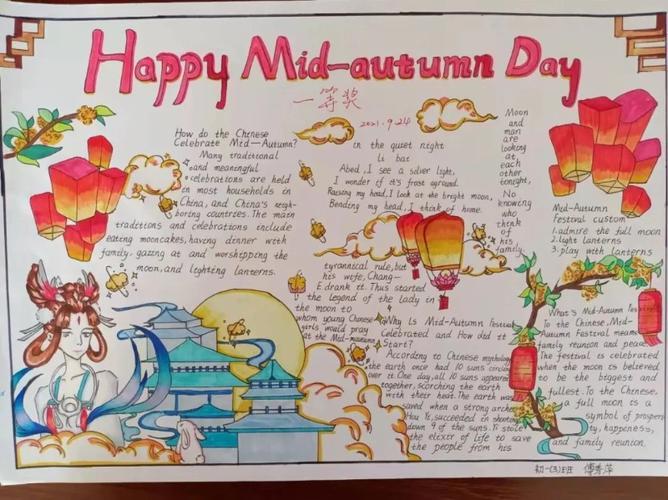 Happy Mid-autumn Day
一等奖
2021.9.24
How do the Chinese
Celebrate Mid-Autumn?
Many traditional
and meaningful
celebrations are held
in most households in
China, and China's neigh-
boring countries. The main
traditions and celebrations include
eating mooncakes, having dinner with
family, gazing at and worshipping the
moon, and lighting lanterns.
in the quiet night
Li bai
Abed, I see a silver light,
I wonder if it's frost aground.
Raising my head, I look at the bright moon,
Bending my head, I think of home.
Moon
and
man
are
looking
at
each
other
tonight,
No
knowing
who
think
of
his
family.
Mid-Autumn
Festival custom
1.admire the full moon
2.light lanterns
3.play with lanterns
tyrannical rule, but
his wife, Chang-
E drank it. Thus started
the legend of the lady in
the moon to
whom young Chinese
girls would pray
at the Mid-
Why Is Mid-Autumn Festival
Celebrated and How did it
Start?
According to Chinese mythology
the earth once had 10 suns circling
over it. One day, all 10 suns appeared
together, Scorching the earth
with their heat. The earth was
saved when a strong archer
Hou Yi, succeeded in shooting
down 9 of the suns. Yi stole
the elixir of life to save
the people from his
What's Mid-Autumn Festival
To the Chinese, Mid-
Autumn Festival means
family reunion and peace.
The festival is celebrated
when the moon is believed
to be the biggest and
fullest. To the Chinese,
a full moon is a
symbol of prosperi
ty, happiness,
and family reunion.
初一(3)班 傅秀萍